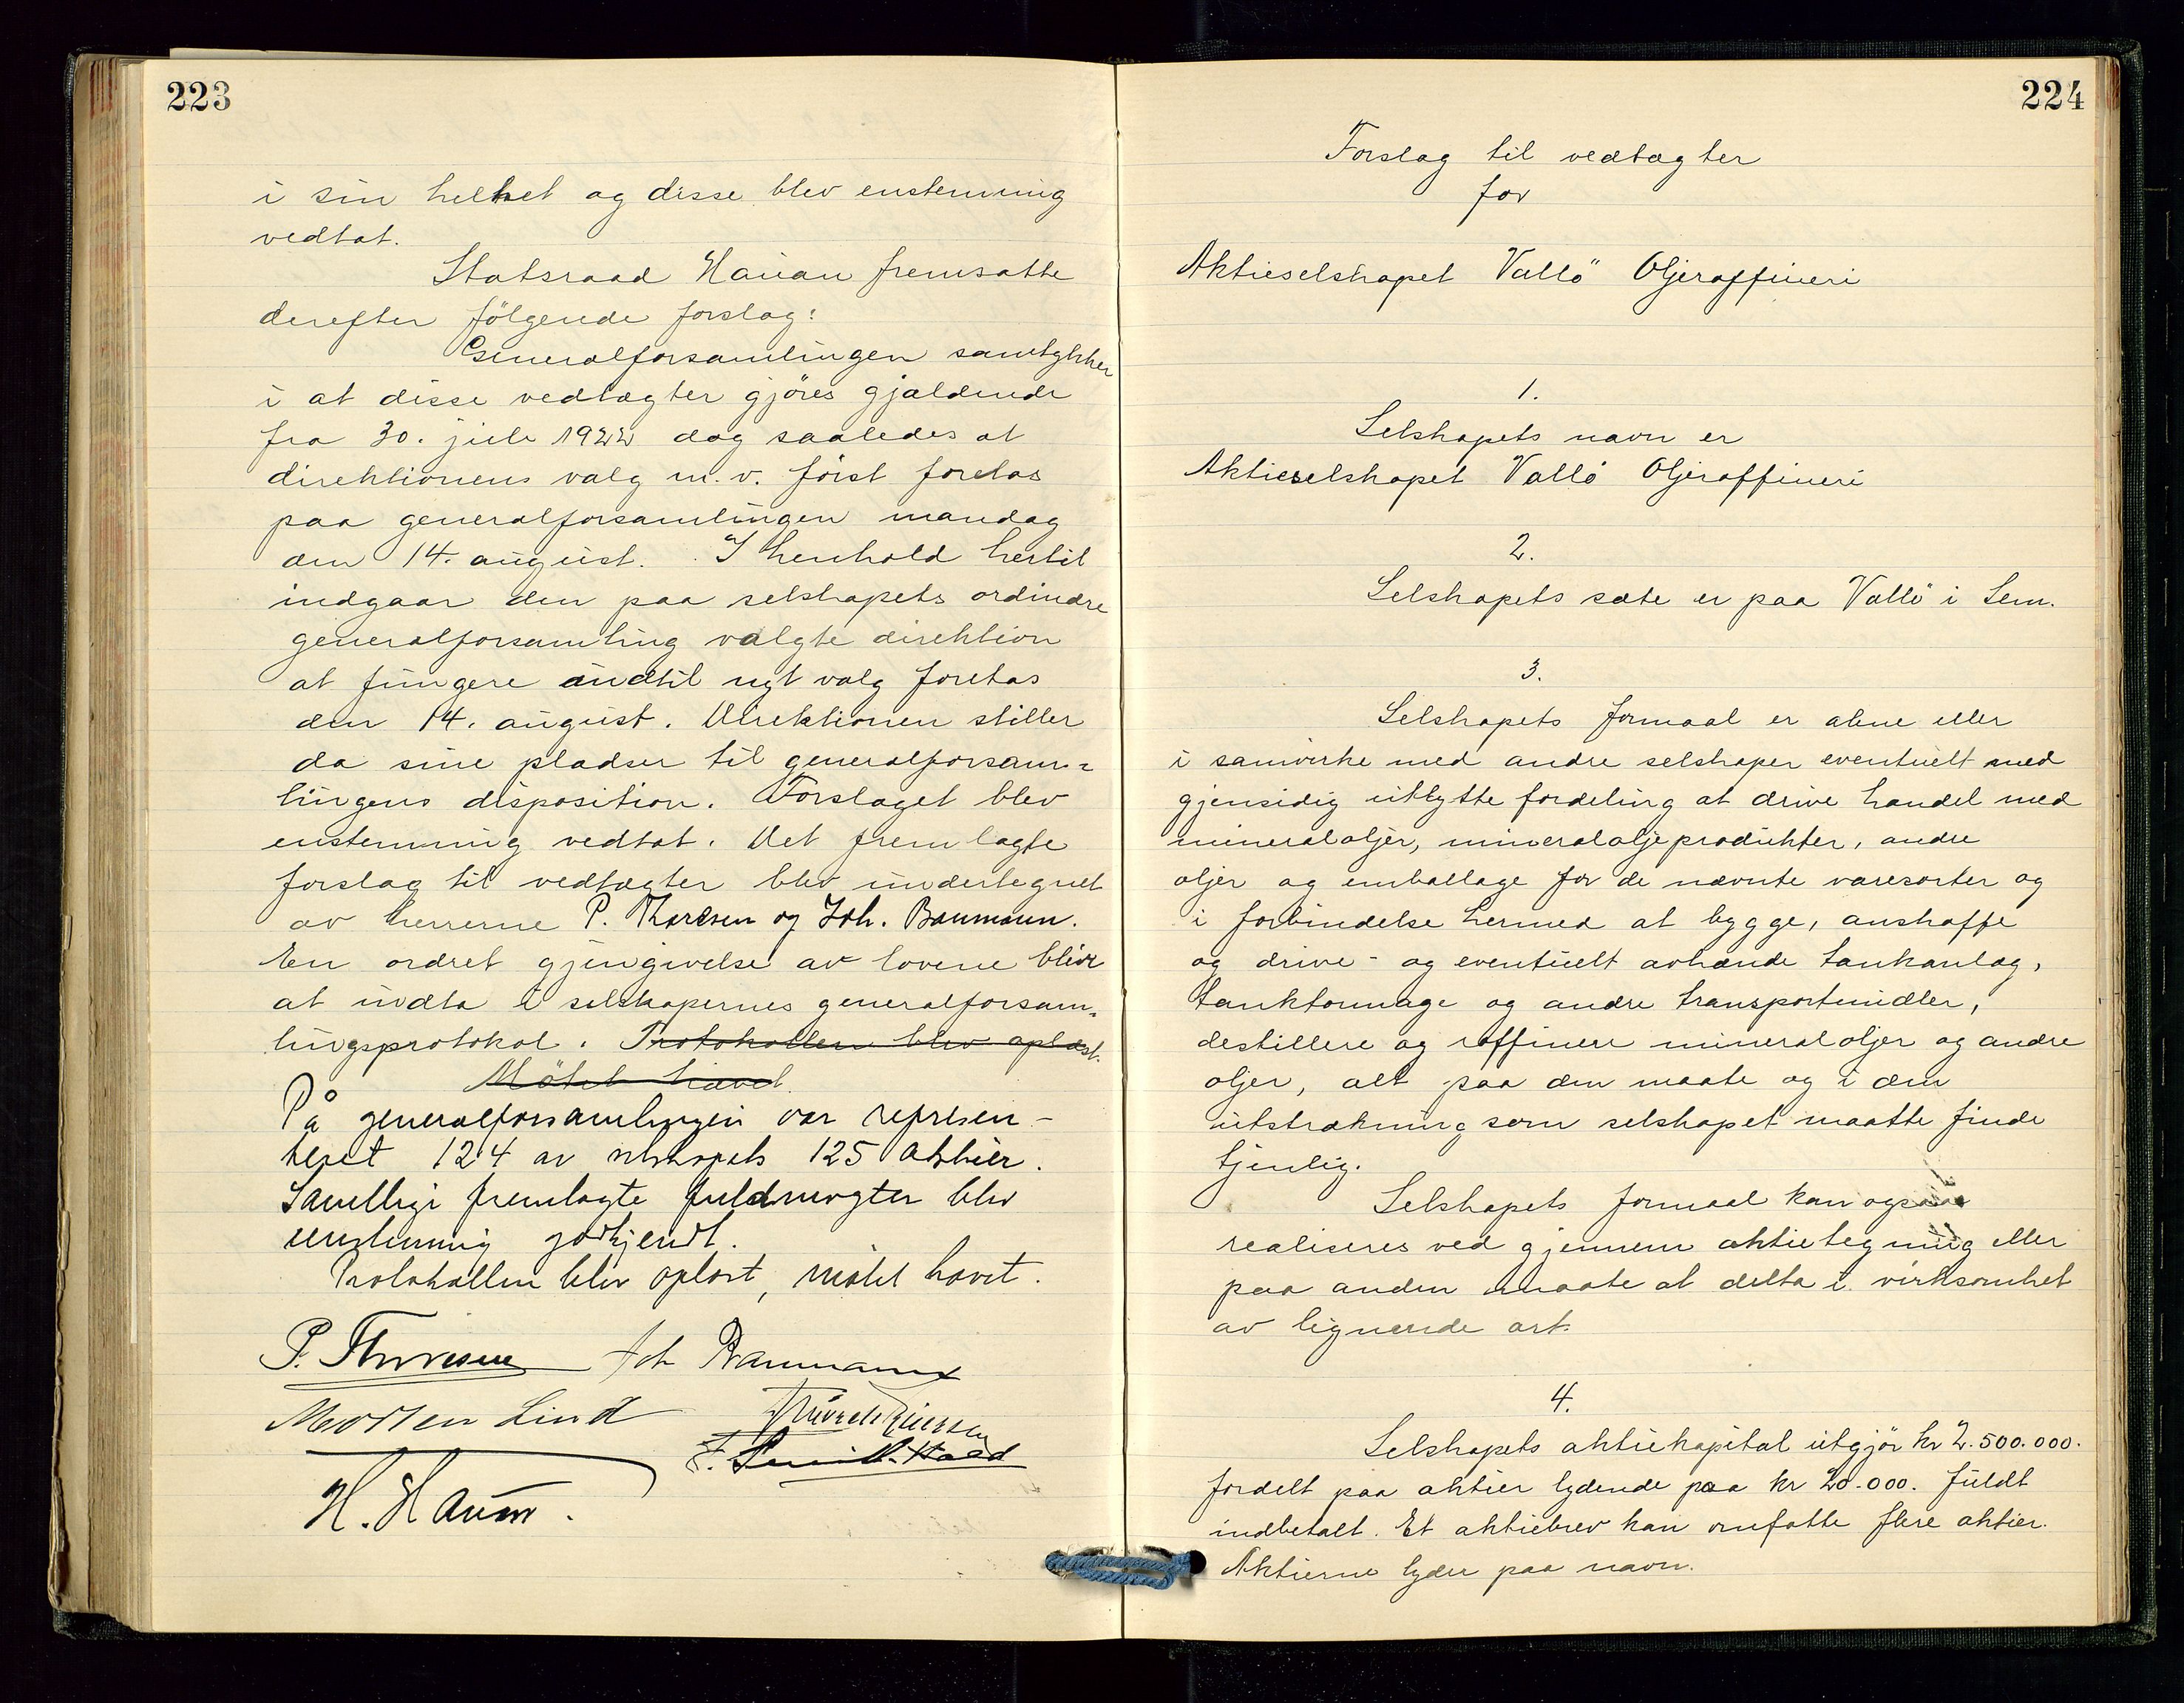 223
i sin helhet og disse blev enstemmig
vedtat.
Statsraad Hauan fremsatte
derefter fölgende forslag:
Generalforsamlingen samtykker
i at disse vedtægter gjöres gjældende
fra 30. juli 1922 dog saaledes at
direktionens valg m.v. först foretas
paa generalforsamlingen mandag
den 14. august. I henhold hertil
indgaar den paa selskapets ordinære
generalforsamling valgte direktion
at fungere indtil nyt valg foretas
den 14. august. Direktionen stiller
da sine pladser til generalforsam=
lingens disposition. Forslaget blev
enstemmig vedtat. Det fremlagte
forslag til vedtægter blev undertegnet
av herrerne P. Thoresen og Joh. Baumann.
En ordret gjengivelse av lovene blir
at indta i selskapernes generalforsam=
lingsprotokol. Protokollen blev oplæst.
Mötet hævet.
På generalforsamlingen var represen-
teret 124 av selskapets 125 aktier.
Samtlige fremlagte fuldmagter blev
enstemmig godkjendt.
Protokollen blev oplæst, mötet hævet.
P. Thoresen Joh Baumann
Morten Lind
H. Hauan.
224
Forslag til vedtægter
for
Aktieselskapet Vallö Oljeraffineri
1.
Selskapets navn er
Aktieselskapet Vallö Oljeraffineri
2.
Selskapets sæte er paa Vallö i Sem.
3.
Selskapets formaal er alene eller
i samvirke med andre selskaper eventuelt med
gjensidig utbytte fordeling at drive handel med
mineraloljer, mineraloljeprodukter, andre
oljer og emballage for de nævnte varesorter og
i forbindelse hermed at bygge, anskaffe
og drive - og eventuelt avhænde tankanlæg,
tanktonnage og andre transportmidler,
destillere og raffinere mineraloljer og andre
oljer, alt paa den maate og i den
utstrækning som selskapet maatte finde
tjenlig.
Selskapets formaal kan ogsaa
realiseres ved gjennem aktietegning eller
paa anden maate at delta i virksomhet
av lignende art.
4.
Selskapets aktiekapital utgjör kr 2.500.000.
fordelt paa aktier lydende paa kr 20.000. fuldt
indbetalt. Et aktiebrev kan omfatte flere aktier.
Aktierne lyder paa navn.